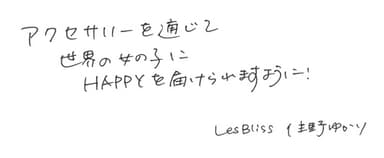 アクセサリーを通じて
世界の女の子に
HAPPYを届けられますように!
LesBliss